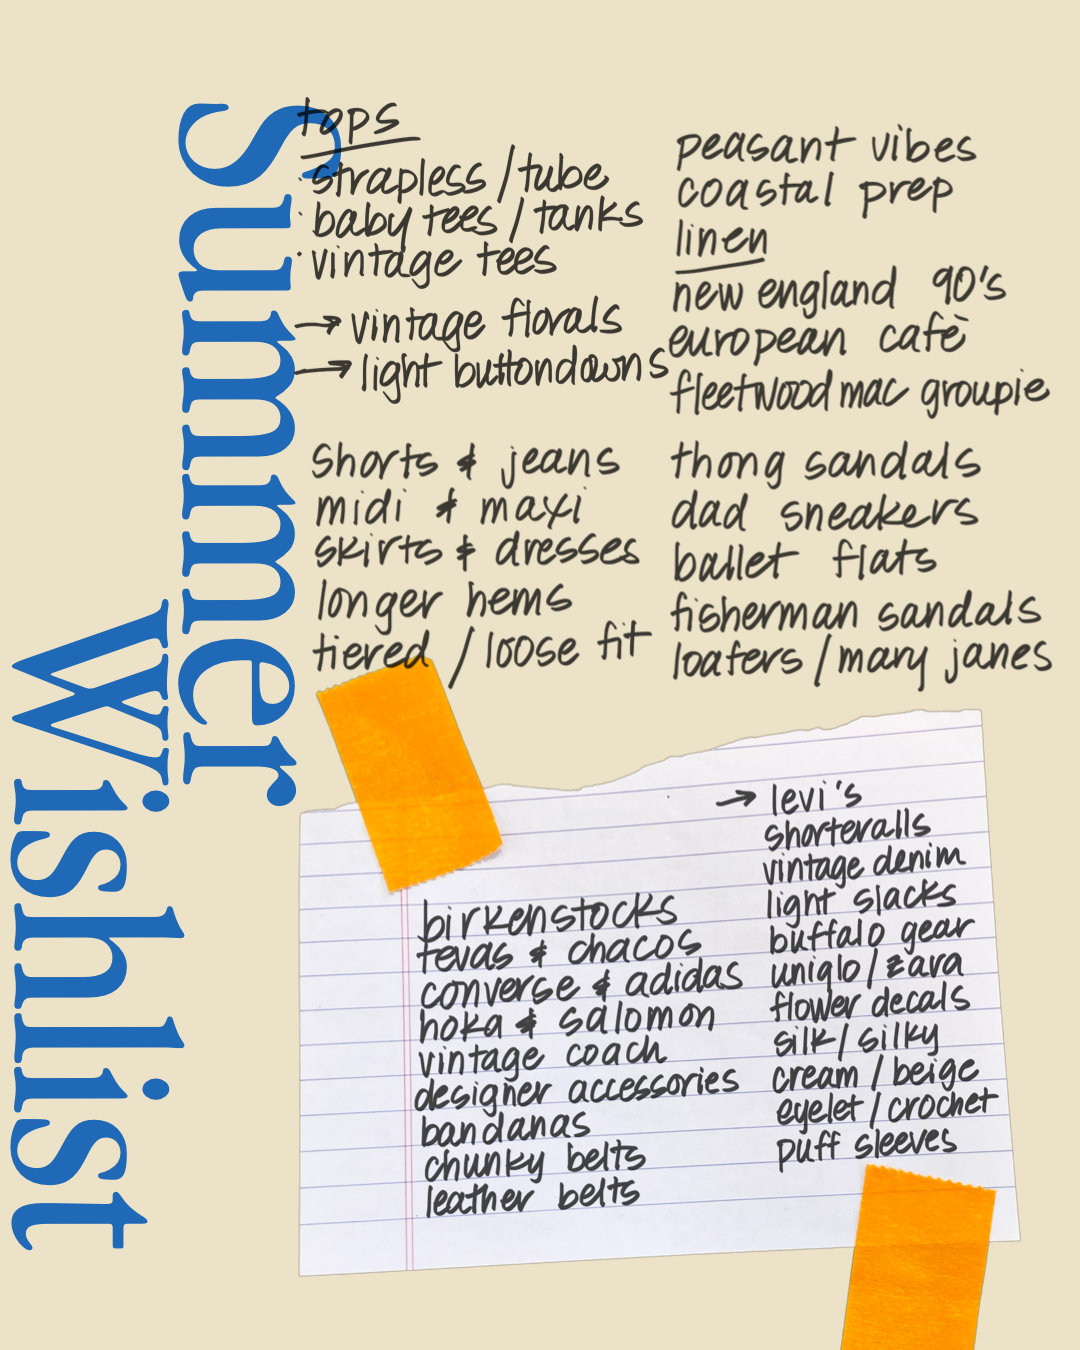 Summer
Wishlist
tops
· strapless / tube
· baby tees / tanks
· vintage tees
→ vintage florals
→ light buttondowns
shorts & jeans
midi & maxi
skirts & dresses
longer hems
tiered / loose fit
peasant vibes
coastal prep
linen
new england 90's
european cafè
fleetwood mac groupie
thong sandals
dad sneakers
ballet flats
fisherman sandals
loafers / mary janes
birkenstocks
tevas & chacos
converse & adidas
hoka & salomon
vintage coach
designer accessories
bandanas
chunky belts
leather belts
→ levi's
shorteralls
vintage denim
light slacks
buffalo gear
uniqlo / zara
flower decals
silk / silky
cream / beige
eyelet / crochet
puff sleeves